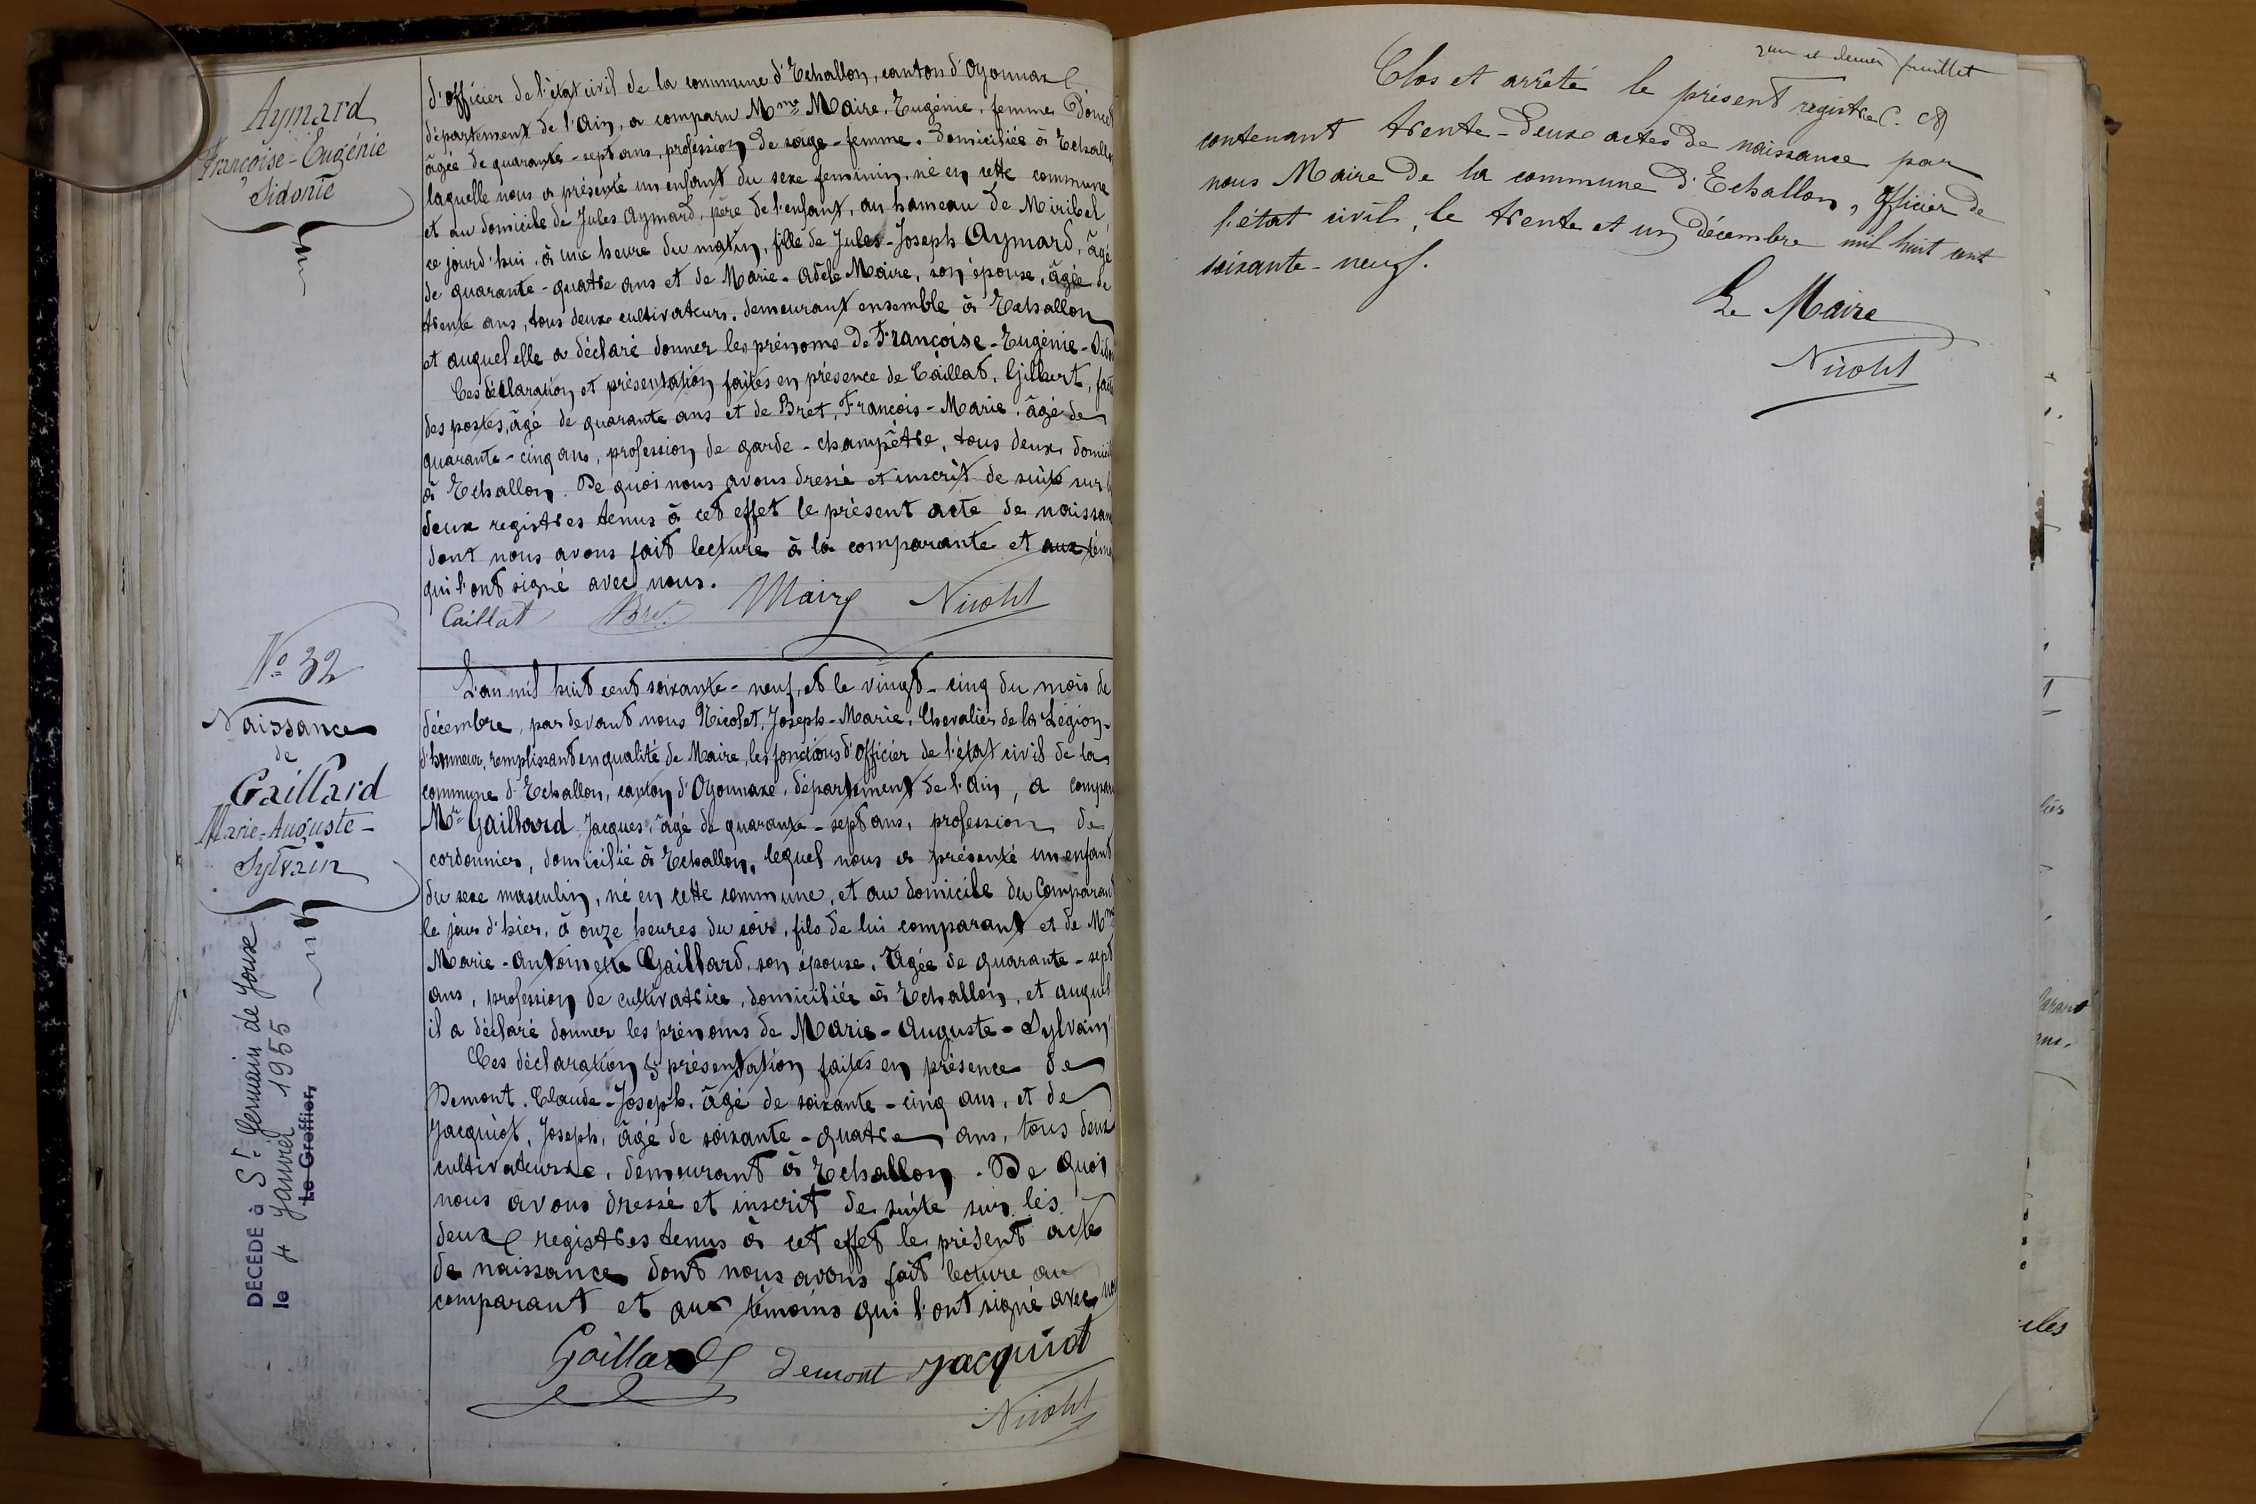 Aymard
Françoise-Eugénie
Sidonie
d'officier de l'état civil de la commune d'Echallon, canton d'Oyonnax
département de l'Ain, a comparu Mme Maire, Eugénie, femme
âgée de quarante-sept ans, profession de sage-femme, domiciliée à Echallon
laquelle nous a présenté un enfant du sexe feminin, né en cette commune
et au domicile de Jules Aymard, père de l'enfant, au hameau de Miribel
ce jourd'hui, à une heure du matin, fille de Jules-Joseph Aymard, âgé
de quarante-quatre ans et de Marie-Adèle Maire, son épouse, âgée de
trente ans, tous deux cultivateurs, demeurant ensemble à Echallon
et auquel elle a déclaré donner les prénoms de Françoise-Eugénie-Sido
Ces déclaration et présentation faites en présence de Caillat, Gilbert, fact
des postes, âgé de quarante ans et de Bret, François-Marie, âgé de
quarante-cinq ans, profession de garde-champêtre, tous deux domicil
à Echallon. De quoi nous avons dressé et inscrit de suite sur
deux registres tenus à cet effet le présent acte de naissan
dont nous avons fait lecture à la comparante et aux témo
qui l'ont signé avec nous.
Caillat Bret Maire Nicolet
No 32
Naissance
de
Gaillard
Marie-Auguste-
Sylvain
DÉCÉDÉ à St. Germain de Joux
le 4 Janvier 1955
Le Greffier,
L'an mil huit cent soixante-neuf, et le vingt-cinq du mois de
décembre, par devant nous Nicolet, Joseph-Marie, Chevalier de la Légion-
d'honneur, remplissant en qualité de Maire, les fonctions d'officier de l'état civil de la
commune d'Echallon, canton d'Oyonnaxe, département de l'Ain, a comparu
Mr Gaillard Jacques, âgé de quarante-sept ans, profession de
cordonnier, domicilié à Echallon, lequel nous a présenté un enfant
du sexe masculin, né en cette commune, et au domicile du Comparant
le jour d'hier, à onze heures du soir, fils de lui comparant et de Mme
Marie-Antoinette Gaillard, son épouse, âgée de quarante-sept
ans, profession de cultivatrice, domiciliée à Echallon, et auquel
il a déclaré donner les prénoms de Marie-Auguste-Sylvain
Ces déclaration & présentation faites en présence de
Demont, Claude-Joseph, âgé de soixante-cinq ans, et de
Jacquiot, Joseph, âgé de soixante-quatre ans, tous deux
cultivateurs, demeurant à Echallon. De quoi
nous avons dressé et inscrit de suite sur les
deux registres tenus à cet effet le présent acte
de naissance dont nous avons fait lecture au
comparant et aux témoins qui l'ont signé avec nous
Gaillard Demont Jacquiot
Nicolet
et dernier feuillet
Clos et arrêté le présent registre
contenant trente-deux actes de naissance par
nous Maire de la commune d'Echallon, Officier de
l'état civil, le trente et un décembre mil huit cent
soixante-neuf.
Le Maire
Nicolet